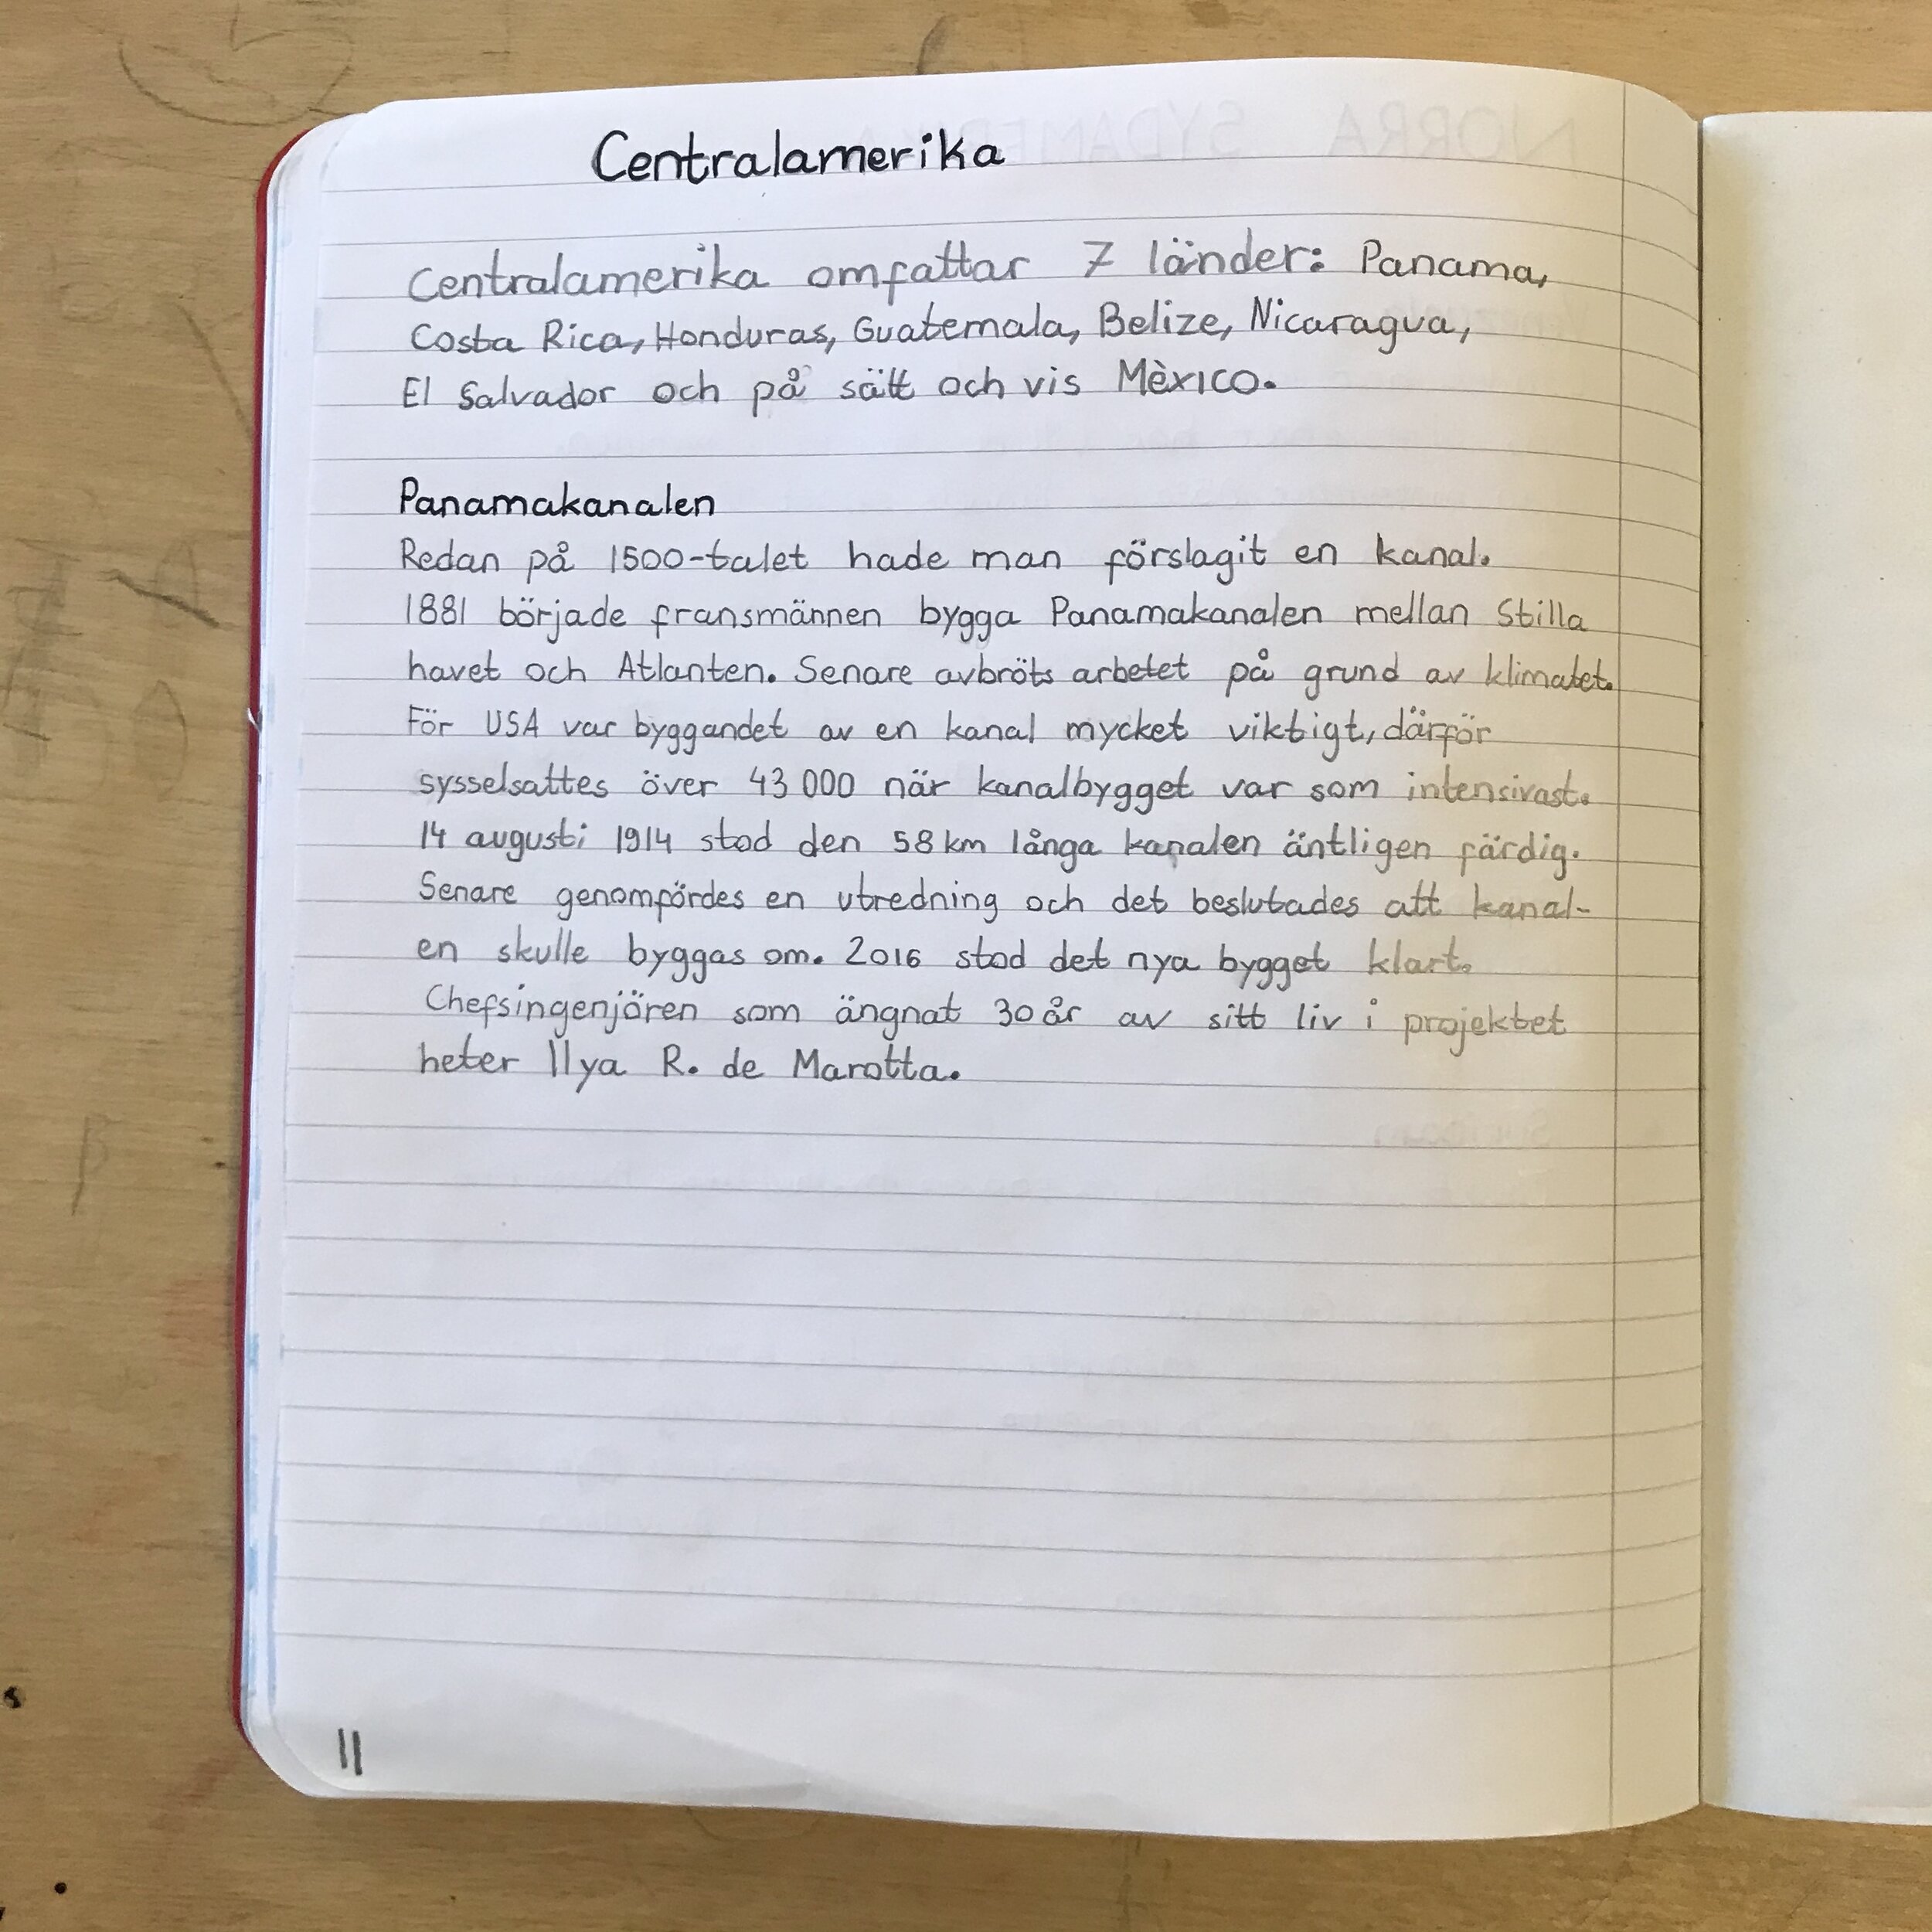 Centralamerika
Centralamerika omfattar 7 länder: Panama,
Costa Rica, Honduras, Guatemala, Belize, Nicaragua,
El Salvador och på sätt och vis Mèxico.
Panamakanalen
Redan på 1500-talet hade man förslagit en kanal.
1881 började fransmännen bygga Panamakanalen mellan Stilla
havet och Atlanten. Senare avbröts arbetet på grund av klimatet.
För USA var byggandet av en kanal mycket viktigt, därför
sysselsattes över 43 000 när kanalbygget var som intensivast.
14 augusti 1914 stod den 58 km långa kanalen äntligen färdig.
Senare genomfördes en utredning och det beslutades att kanal-
en skulle byggas om. 2016 stod det nya bygget klart.
Chefsingenjören som ängnat 30 år av sitt liv i projektet
heter Ilya R. de Marotta.
11